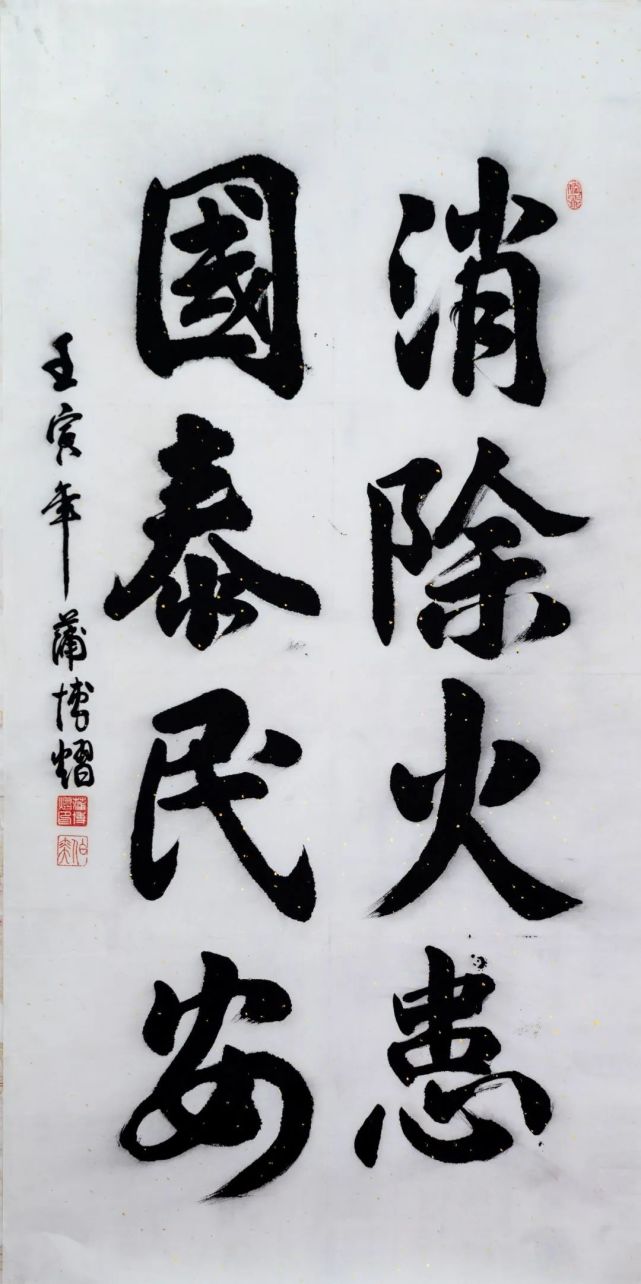 消除火患
國泰民安
壬寅年蒲博熠